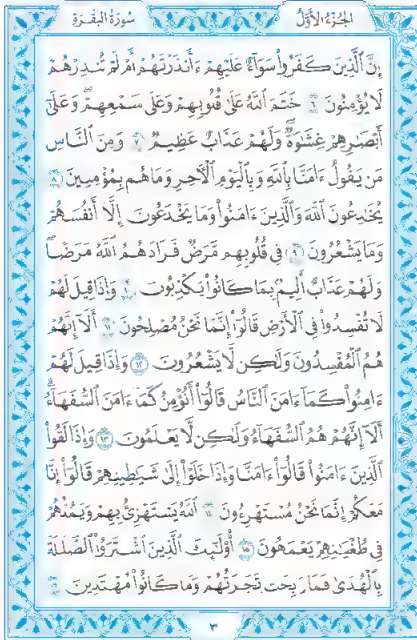 الجزء الأول
سورة البقرة
إِنَّ ٱلَّذِينَ كَفَرُوا۟ سَوَآءٌ عَلَيْهِمْ ءَأَنذَرْتَهُمْ أَمْ لَمْ تُنذِرْهُمْ
لَا يُؤْمِنُونَ ٦ خَتَمَ ٱللَّهُ عَلَىٰ قُلُوبِهِمْ وَعَلَىٰ سَمْعِهِمْ ۖ وَعَلَىٰٓ
أَبْصَـٰرِهِمْ غِشَـٰوَةٌ ۖ وَلَهُمْ عَذَابٌ عَظِيمٌ ٧ وَمِنَ ٱلنَّاسِ
مَن يَقُولُ ءَامَنَّا بِٱللَّهِ وَبِٱلْيَوْمِ ٱلْـَٔاخِرِ وَمَا هُم بِمُؤْمِنِينَ ٨
يُخَـٰدِعُونَ ٱللَّهَ وَٱلَّذِينَ ءَامَنُوا۟ وَمَا يَخْدَعُونَ إِلَّآ أَنفُسَهُمْ
وَمَا يَشْعُرُونَ ٩ فِى قُلُوبِهِم مَّرَضٌ فَزَادَهُمُ ٱللَّهُ مَرَضًا ۖ
وَلَهُمْ عَذَابٌ أَلِيمٌۢ بِمَا كَانُوا۟ يَكْذِبُونَ ١٠ وَإِذَا قِيلَ لَهُمْ
لَا تُفْسِدُوا۟ فِى ٱلْأَرْضِ قَالُوٓا۟ إِنَّمَا نَحْنُ مُصْلِحُونَ ١١ أَلَآ إِنَّهُمْ
هُمُ ٱلْمُفْسِدُونَ وَلَـٰكِن لَّا يَشْعُرُونَ ١٢ وَإِذَا قِيلَ لَهُمْ
ءَامِنُوا۟ كَمَآ ءَامَنَ ٱلنَّاسُ قَالُوٓا۟ أَنُؤْمِنُ كَمَآ ءَامَنَ ٱلسُّفَهَآءُ ۗ
أَلَآ إِنَّهُمْ هُمُ ٱلسُّفَهَآءُ وَلَـٰكِن لَّا يَعْلَمُونَ ١٣ وَإِذَا لَقُوا۟
ٱلَّذِينَ ءَامَنُوا۟ قَالُوٓا۟ ءَامَنَّا وَإِذَا خَلَوْا۟ إِلَىٰ شَيَـٰطِينِهِمْ قَالُوٓا۟ إِنَّا
مَعَكُمْ إِنَّمَا نَحْنُ مُسْتَهْزِءُونَ ١٤ ٱللَّهُ يَسْتَهْزِئُ بِهِمْ وَيَمُدُّهُمْ
فِى طُغْيَـٰنِهِمْ يَعْمَهُونَ ١٥ أُو۟لَـٰٓئِكَ ٱلَّذِينَ ٱشْتَرَوُا۟ ٱلضَّلَـٰلَةَ
بِٱلْهُدَىٰ فَمَا رَبِحَت تِّجَـٰرَتُهُمْ وَمَا كَانُوا۟ مُهْتَدِينَ ١٦
٣